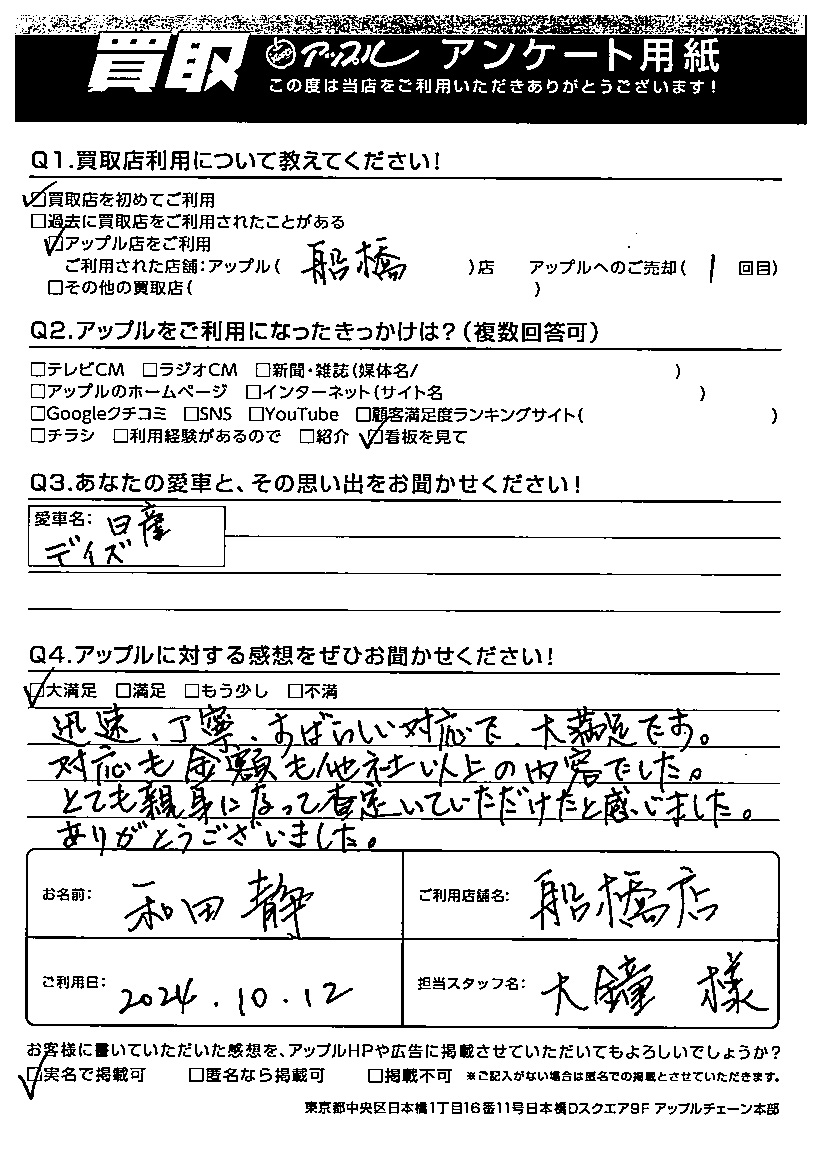 買取 アップル アンケート用紙
この度は当店をご利用いただきありがとうございます!
Q1.買取店利用について教えてください!
☑買取店を初めてご利用
□過去に買取店をご利用されたことがある
☑アップル店をご利用
ご利用された店舗:アップル( 船橋 )店 アップルへのご売却( 1 回目)
□その他の買取店( )
Q2.アップルをご利用になったきっかけは?(複数回答可)
□テレビCM □ラジオCM □新聞・雑誌(媒体名/ )
□アップルのホームページ □インターネット(サイト名 )
□Googleクチコミ □SNS □YouTube □顧客満足度ランキングサイト( )
□チラシ □利用経験があるので □紹介 ☑看板を見て
Q3.あなたの愛車と、その思い出をお聞かせください!
愛車名: 日産
デイズ
Q4.アップルに対する感想をぜひお聞かせください!
☑大満足 □満足 □もう少し □不満
迅速、丁寧、すばらしい対応で、大満足です。
対応も金額も他社以上の内容でした。
とても親身になって査定いていただけたと感じました。
ありがとうございました。
お名前: 和田 静
ご利用店舗名: 船橋店
ご利用日: 2024.10.12
担当スタッフ名: 大鐘 様
お客様に書いていただいた感想を、アップルHPや広告に掲載させていただいてもよろしいでしょうか?
☑実名で掲載可 □匿名なら掲載可 □掲載不可 ※ご記入がない場合は匿名での掲載とさせていただきます。
東京都中央区日本橋1丁目16番11号日本橋Dスクエア9F アップルチェーン本部